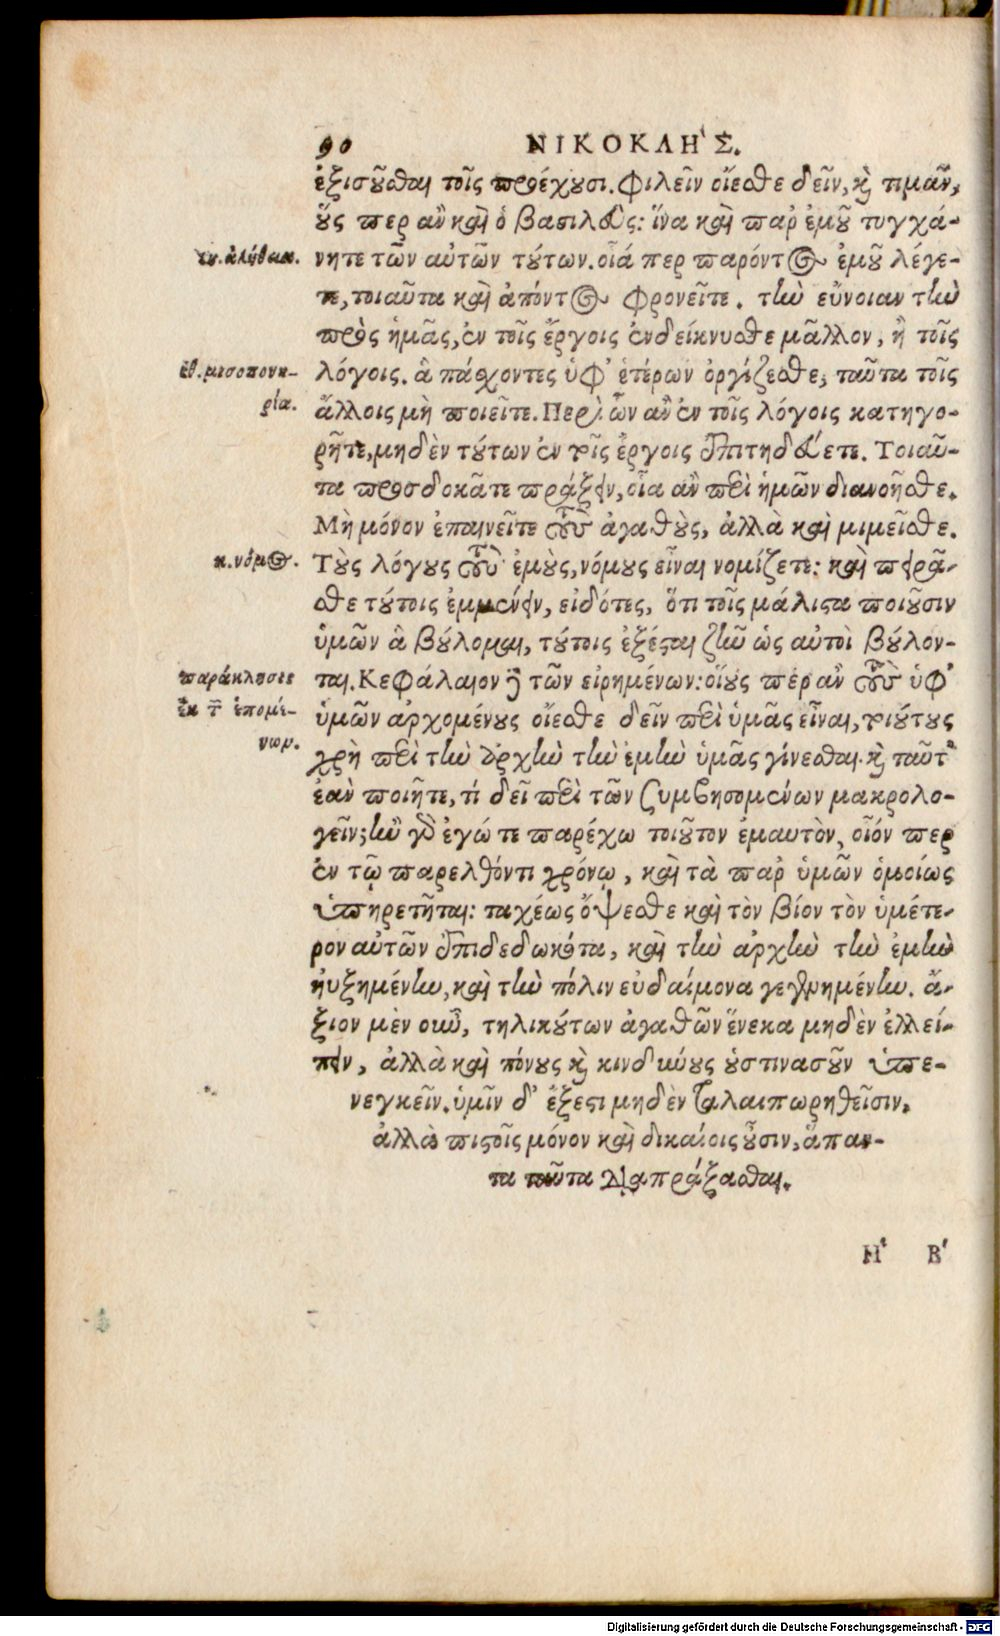 90 ΝΙΚΟΚΛΗ'Σ.
ἐξισοῦσθαι τοῖς προέχουσι. Φιλεῖν οἴεσθε δεῖν, καὶ τιμᾶν,
οὕς περ ἂν καὶ ὁ βασιλεὺς: ἵνα καὶ παρ' ἐμοῦ τυγχά-
νητε τῶν αὐτῶν τούτων. οἷά περ παρόντος ἐμοῦ λέγε-
τε, τοιαῦτα καὶ ἀπόντος φρονεῖτε. τὴν εὔνοιαν τὴν
πρὸς ἡμᾶς, ἐν τοῖς ἔργοις ἐνδείκνυσθε μᾶλλον, ἢ τοῖς
λόγοις. ἃ πάσχοντες ὑφ' ἑτέρων ὀργίζεσθε, ταῦτα τοῖς
ἄλλοις μὴ ποιεῖτε. Περὶ ὧν ἂν ἐν τοῖς λόγοις κατηγο-
ρῆτε, μηδὲν τούτων ἐν τοῖς ἔργοις ἐπιτηδεύετε. Τοιαῦ-
τα προσδοκᾶτε πράξειν, οἷα ἂν περὶ ἡμῶν διανοῆσθε.
Μὴ μόνον ἐπαινεῖτε τοὺς ἀγαθοὺς, ἀλλὰ καὶ μιμεῖσθε.
Τοὺς λόγους τοὺς ἐμοὺς, νόμους εἶναι νομίζετε: καὶ πειρᾶ-
σθε τούτοις ἐμμένειν, εἰδότες, ὅτι τοῖς μάλιστα ποιοῦσιν
ὑμῶν ἃ βούλομαι, τούτοις ἐξέσται ζῆν ὡς αὐτοὶ βούλον-
ται. Κεφάλαιον δὲ τῶν εἰρημένων: οἵους πέρ ἂν τοὺς ὑφ'
ὑμῶν ἀρχομένους οἴεσθε δεῖν περὶ ὑμᾶς εἶναι, τοιούτους
χρὴ περὶ τὴν ἀρχὴν τὴν ἐμὴν ὑμᾶς γίνεσθαι. καὶ ταῦτ'
ἐὰν ποιῆτε, τί δεῖ περὶ τῶν συμβησομένων μακρολο-
γεῖν; ἢν γὰρ ἐγώ τε παρέχω τοιοῦτον ἐμαυτὸν, οἷόν περ
ἐν τῷ παρελθόντι χρόνῳ, καὶ τὰ παρ' ὑμῶν ὁμοίως
ὑπηρετῆται: ταχέως ὄψεσθε καὶ τὸν βίον τὸν ὑμέτε-
ρον αὐτῶν ἐπιδεδωκότα, καὶ τὴν ἀρχὴν τὴν ἐμὴν
ηὐξημένην, καὶ τὴν πόλιν εὐδαίμονα γεγενημένην. ἄ-
ξιον μὲν οὖν, τηλικούτων ἀγαθῶν ἕνεκα μηδὲν ἐλλεί-
πειν, ἀλλὰ καὶ πόνους καὶ κινδύνους οὑστινασοῦν ὑπε-
νεγκεῖν. ὑμῖν δ' ἔξεστι μηδὲν ταλαιπωρηθεῖσιν,
ἀλλὰ πιστοῖς μόνον καὶ δικαίοις οὖσιν, ἅπαν-
τα ταῦτα διαπράξασθαι.
Η' Β'
ἐν. ἀλήθεια.
ἐθ. μισοπονη-
ρία.
κ. νόμος.
παράκλησις
ἐκ τῶν ἑπομέ-
νων.
Digitalisierung gefördert durch die Deutsche Forschungsgemeinschaft - DFG